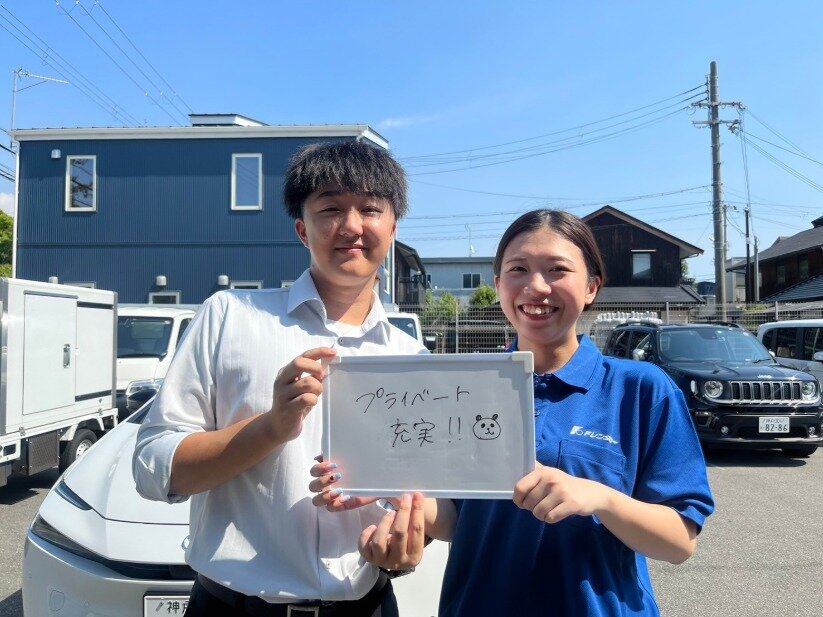 プライベート
充実!!
Jeep
82-86